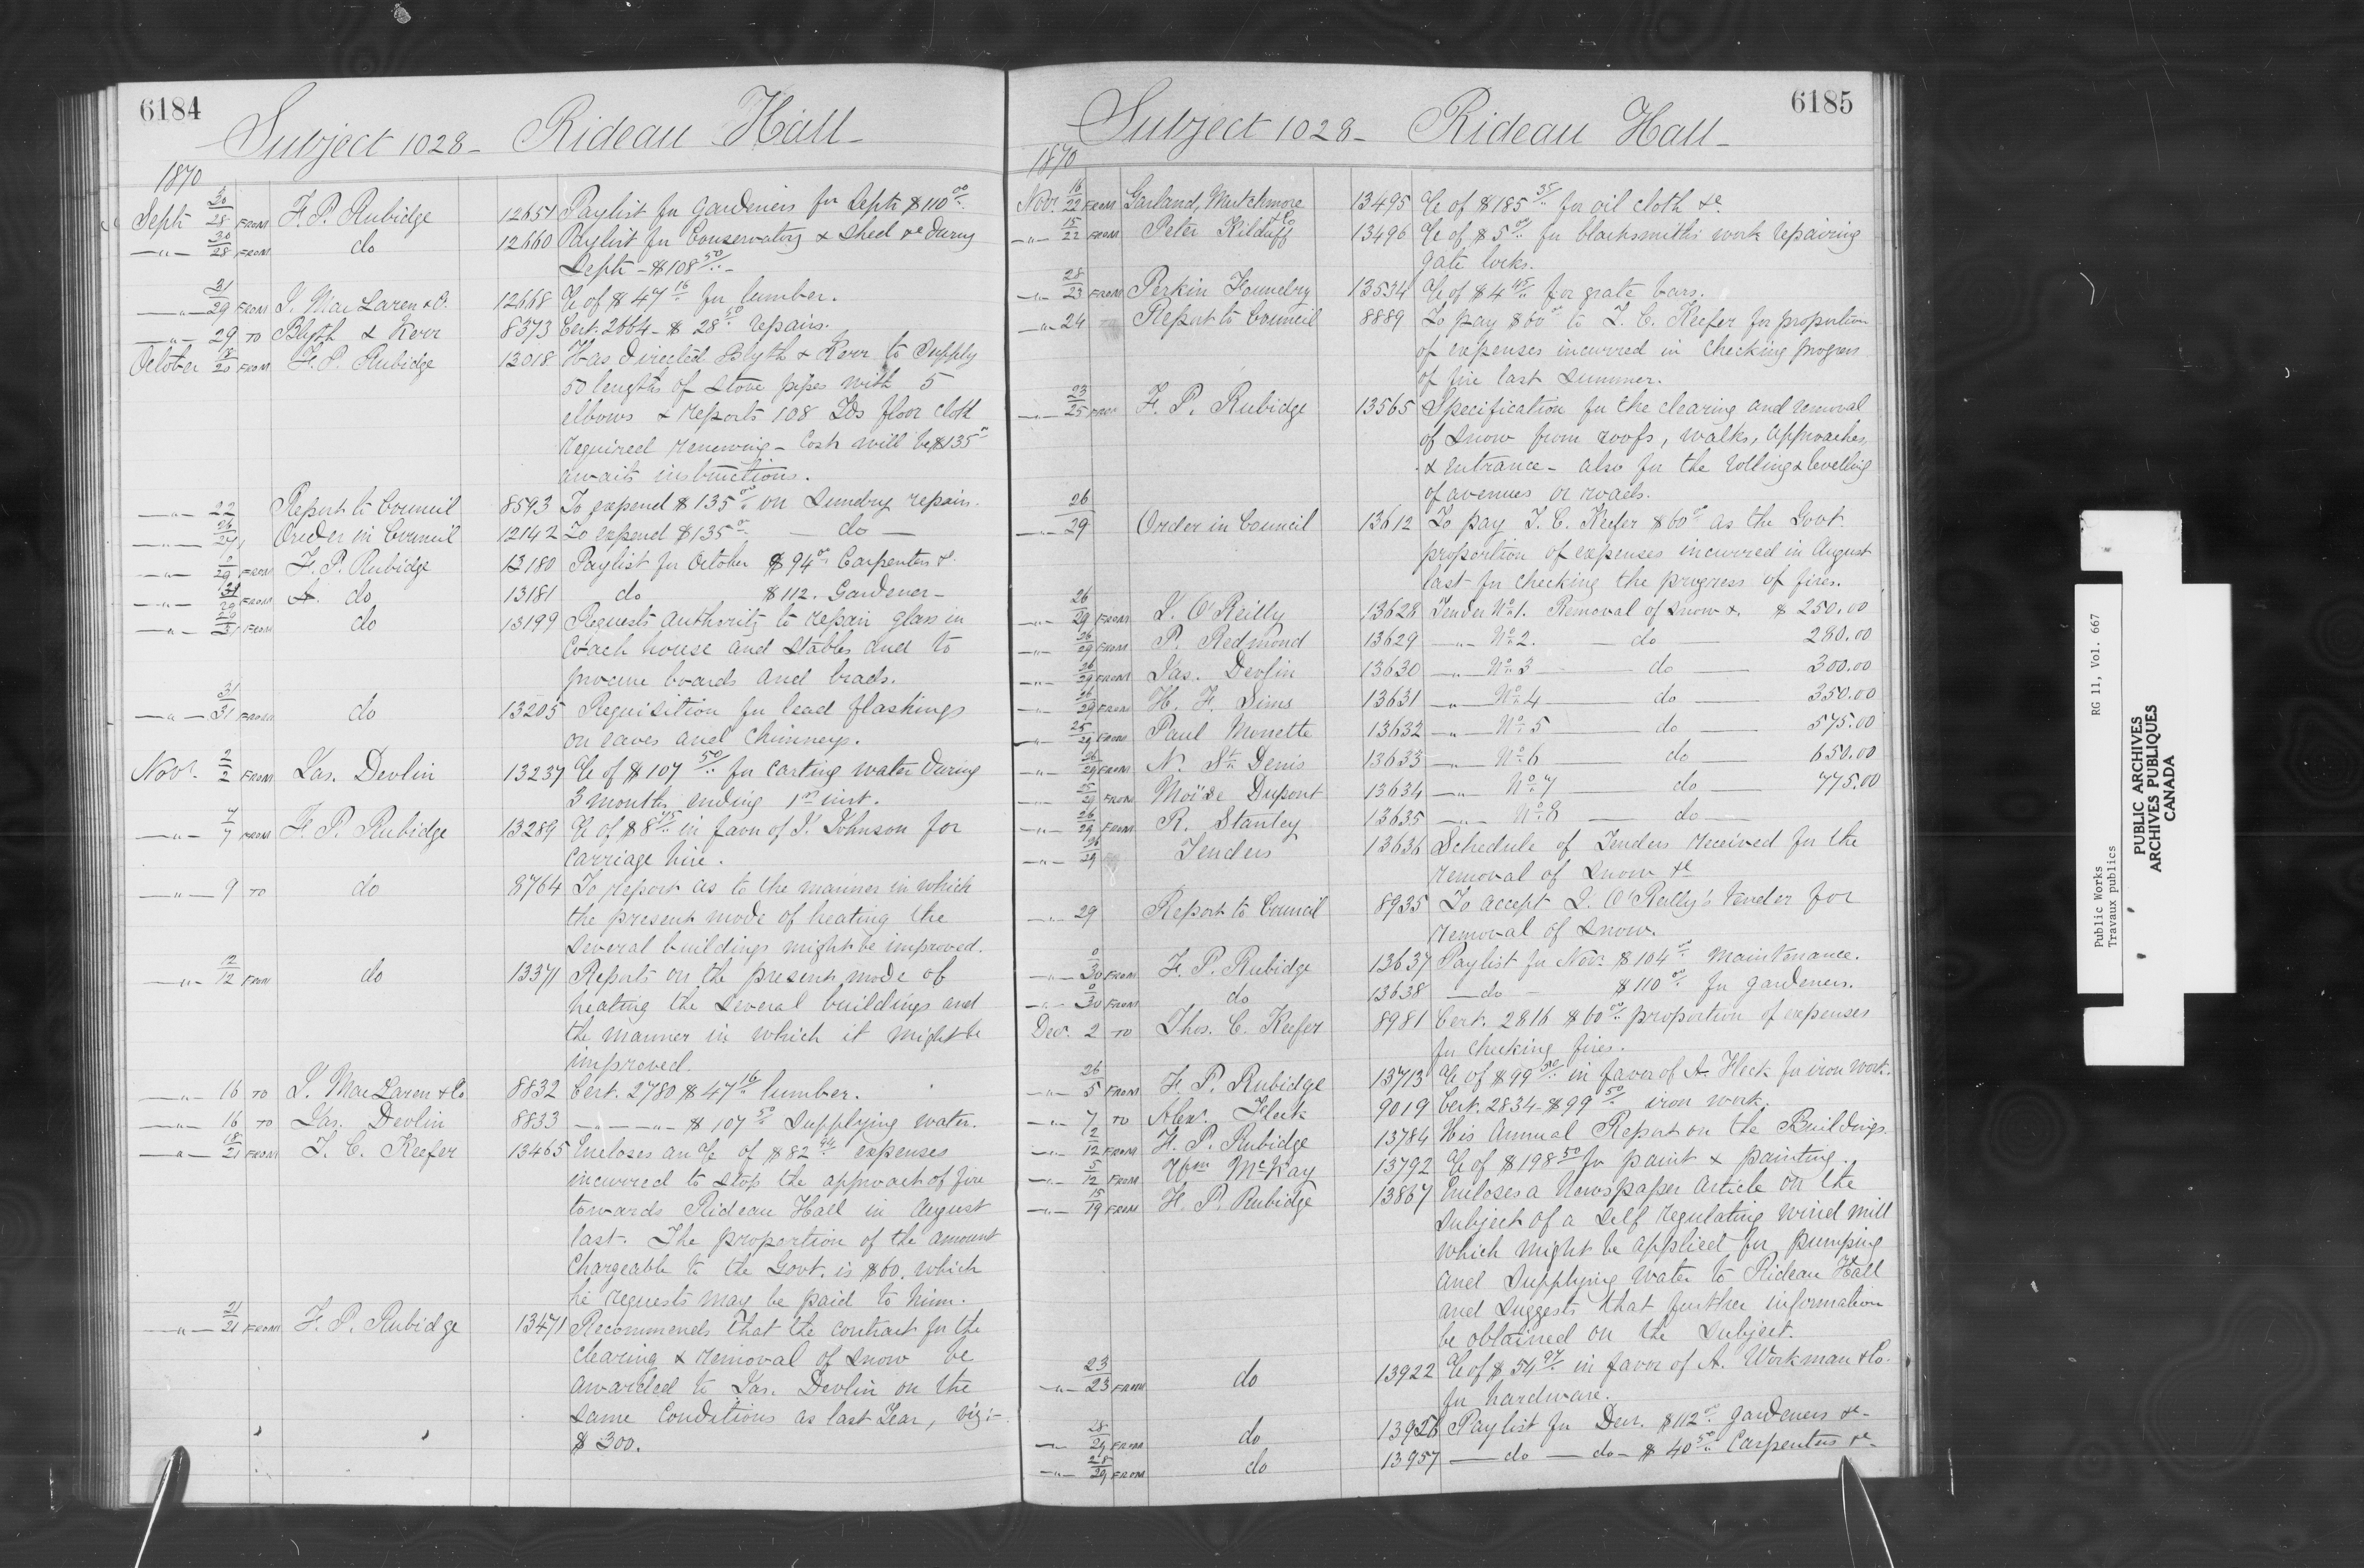 6184
Subject 1028 - Rideau Hall -
1870
Sept 30/28 FROM F. P. Rubidge 12651 Paylist for Gardeners for Sept $110 00/..
— " — 30/28 FROM do 12660 Paylist for Conservatory & shed &c during
Sept - $108 50/.. -
— " — 31/29 FROM J. MacLaren & Co. 12668 a/c of $47 16/.. for lumber.
— " — 29 TO Blyth & Kerr 8373 Cert. 2664 - $28 50/.. repairs.
October 18/20 FROM F. P. Rubidge 13018 Has directed Blyth & Kerr to supply
50 lengths of stove pipes with 5
elbows & reports 108 Yds floor cloth
required renewing - Cost will be $135 "
awaits instructions.
— " — 22 Report to Council 8593 To expend $135 00/.. on sundry repairs.
— " — 26/27 Order in Council 12142 To expend $135 00/.. — do —
— " — 0/29 FROM F. P. Rubidge 13180 Paylist for October $94 00/.. Carpenters &c.
— " — 31/29 FROM do 13181 do $112. Gardener -
— " — 29/31 FROM do 13199 Requests authority to repair glass in
Coach house and stables and to
procure boards and brads.
— " — 31/31 FROM do 13205 Requisition for lead flashings
on eaves and chimneys.
Novr. 2/2 FROM Jas. Devlin 13237 a/c of $107 50/.. for carting water during
3 months ending 1st inst.
— " — 7/7 FROM F. P. Rubidge 13289 a/c of $8 75/.. in favor of J. Johnson for
carriage hire.
— " — 9 TO do 8764 To report as to the manner in which
the present mode of heating the
several buildings might be improved.
— " — 12/12 FROM do 13371 Reports on the present mode of
heating the several buildings and
the manner in which it might be
improved.
— " — 16 TO J. MacLaren & Co 8832 Cert. 2780 $47 16/.. lumber.
— " — 16 TO Jas. Devlin 8833 — " — " — $107 50/.. Supplying water.
— " — 18/21 FROM T. C. Keefer 13465 Encloses an a/c of $82 expenses
incurred to stop the approach of fire
towards Rideau Hall in August
last. The proportion of the amount
chargeable to the Govt. is $60. which
he requests may be paid to him.
— " — 21/21 FROM F. P. Rubidge 13471 Recommends that the contract for the
clearing & removal of snow be
awarded to Jas. Devlin on the
same conditions as last Year, viz: -
$300.
6185
Subject 1028 - Rideau Hall -
1870
Novr. 16/22 FROM Garland, Mutchmore & Co 13495 a/c of $185 35/.. for oil cloth &c.
— " — 15/22 FROM Peter Kilduff 13496 a/c of $5 00/.. for blacksmiths work repairing
gate locks.
— " — 28/23 FROM Perkin Foundry 13534 a/c of $4 45/.. for grate bars.
— " — 24 Report to Council 8889 To pay $60 00/.. to T. C. Keefer for proportion
of expenses incurred in checking progress
of fire last summer.
— " — 23/25 FROM F. P. Rubidge 13565 Specification for the clearing and removal
of snow from roofs, walks, approaches,
& entrance - also for the rolling & levelling
of avenues or roads.
26/29 Order in Council 13612 To pay T. C. Keefer $60 00/.. as the Govt.
proportion of expenses incurred in August
last for checking the progress of fires.
— " — 26/29 FROM J. O'Reilly 13628 Tender No. 1. Removal of snow &c. $250.00
— " — 26/29 FROM P. Redmond 13629 — " — No. 2. — do 280.00
— " — 26/29 FROM Jas. Devlin 13630 — " — No. 3 — do — 300.00
— " — 26/29 FROM H. F. Sims 13631 — " — No. 4 — do — 350.00
— " — 25/29 FROM Paul Monette 13632 — " — No. 5 — do — 575.00
— " — 26/29 FROM N. St. Denis 13633 — " — No. 6 — do — 650.00
— " — 25/29 FROM Moïse Dupont 13634 — " — No. 7 — do — 775.00
— " — 26/29 FROM R. Stanley 13635 — " — No. 8 — do —
— " — 26/29 Tenders 13636 Schedule of Tenders received for the
removal of snow &c
— " — 29 Report to Council 8935 To accept J. O'Reilly's tender for
removal of snow.
— " — 0/30 FROM F. P. Rubidge 13637 Paylist for Nov. $104 00/.. maintenance.
— " — 0/30 FROM do 13638 — do — $110 00/.. for gardeners.
Dec. 2 TO Thos. C. Keefer 8981 Cert. 2816 $60 00/.. proportion of expenses
for checking fires.
— " — 26/5 FROM F. P. Rubidge 13713 a/c of $99 50/.. in favor of A. Fleck for iron work.
— " — 7 TO Alexr. Fleck 9019 Cert. 2834 - $99 50/.. iron work.
— " — 12/12 FROM F. P. Rubidge 13784 His Annual Report on the Buildings.
— " — 5/12 FROM Wm McKay 13792 a/c of $198 50/.. for paint & painting.
— " — 15/19 FROM F. P. Rubidge 13867 Encloses a Newspaper article on the
subject of a self regulating wind mill
which might be applied for pumping
and supplying water to Rideau Hall
and suggests that further information
be obtained on the subject.
— " — 23/23 FROM do 13922 a/c of $54 97/.. in favor of A. Workman & Co.
for hardware.
— " — 28/29 FROM do 13926 Paylist for Decr. $112 00/.. gardeners &c -
— " — 28/29 FROM do 13957 — do — do - $40 50/.. Carpenters &c -
Public Works RG 11, Vol. 667
Travaux publics
PUBLIC ARCHIVES
ARCHIVES PUBLIQUES
CANADA